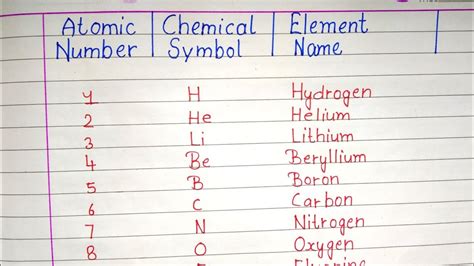 Atomic Number Chemical Symbol Element Name
1 H Hydrogen
2 He Helium
3 Li Lithium
4 Be Beryllium
5 B Boron
6 C Carbon
7 N Nitrogen
8 O Oxygen